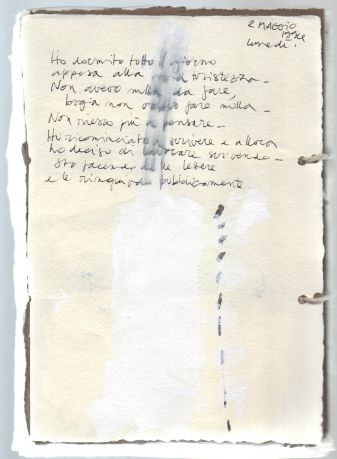 2 MAGGIO
lunedì.
Ho dormito tutto il giorno
appesa alla mia tristezza_
Non avevo nulla da fare,
non fare nulla_
Non riesco più a pensare_
Ho ricominciato a scrivere e allora
ho deciso di lavorare scrivendo_
Sto facendo delle lettere
e le pubblicamente